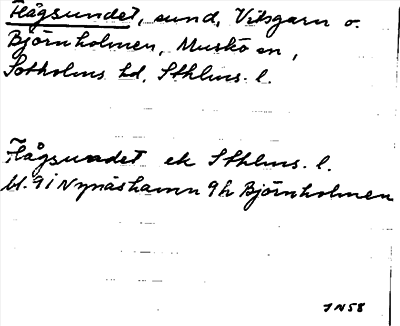 Hågsundet, sund, Vitsgarn o.
Björnholmen, Muskö sn,
Sotholms hd, Sthlms. l.
Hågsundet ek Sthlms. l.
bl. 9i Nynäshamn 9h Björnholmen
JN58